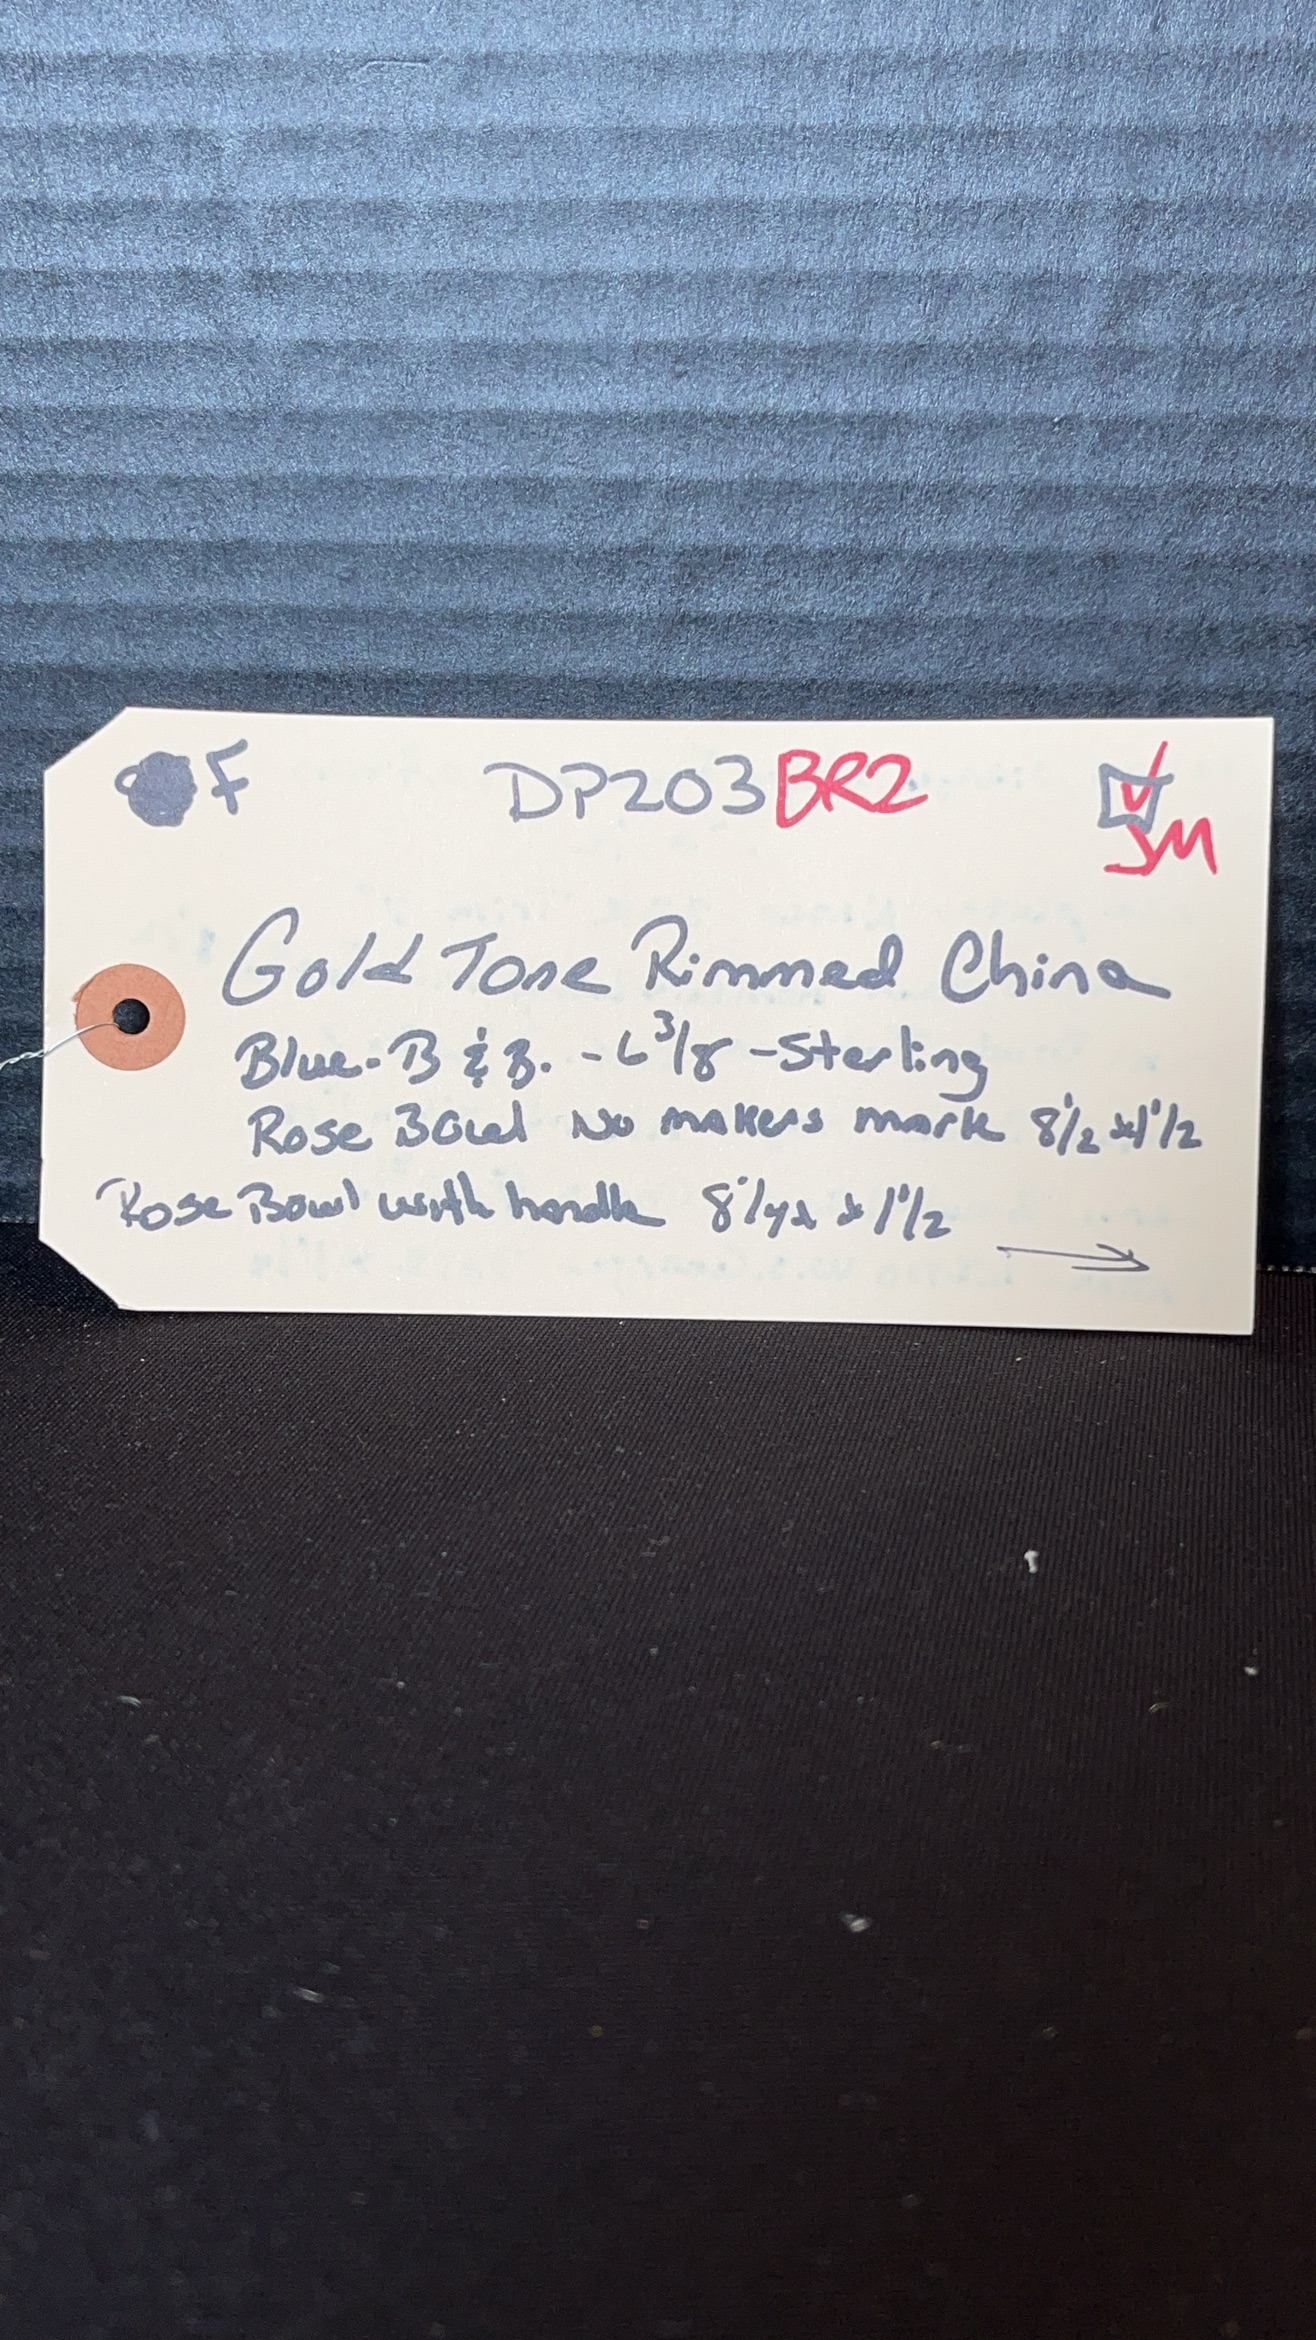 F DP203 BR2 JM
Gold Tone Rimmed China
Blue - B & B. - 6 3/8 - Sterling
Rose Bowl No makers mark 8 1/2 x 1 1/2
Rose Bowl with handle 8 1/4 x 1 1/2